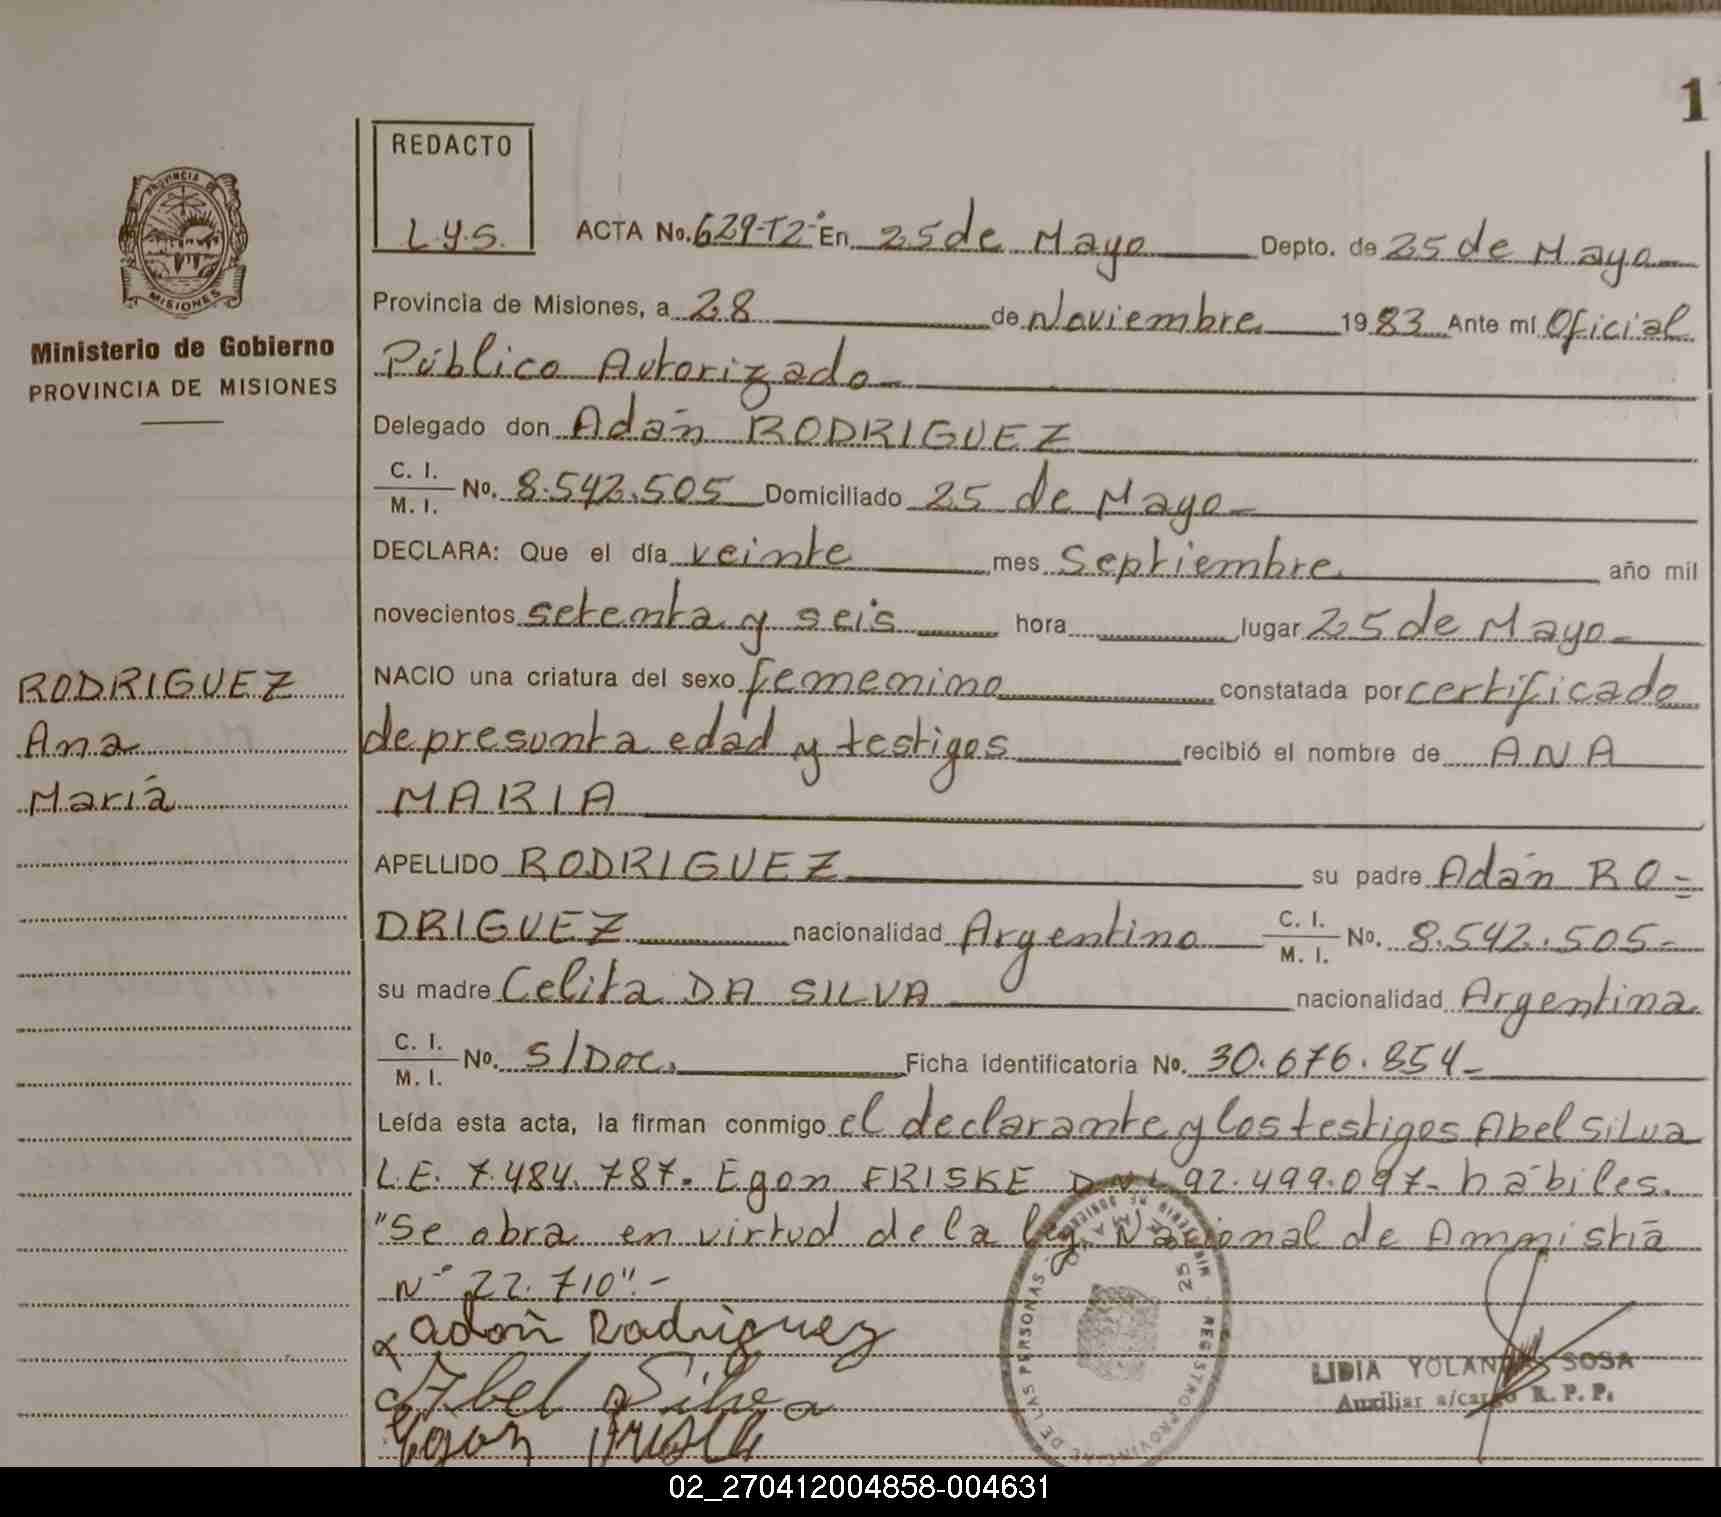 1
REDACTO
L.Y.S.
PROVINCIA DE
MISIONES
Ministerio de Gobierno
PROVINCIA DE MISIONES
RODRIGUEZ
Ana
María
ACTA No. 629-T2° En 25 de Mayo Depto. de 25 de Mayo
Provincia de Misiones, a 28 de Noviembre 1983 Ante mí Oficial
Público Autorizado
Delegado don Adán RODRIGUEZ
C. I. / M. I. No. 8.542.505 Domiciliado 25 de Mayo
DECLARA: Que el día veinte mes Septiembre año mil
novecientos setenta y seis hora lugar 25 de Mayo
NACIO una criatura del sexo femenino constatada por certificado
de presunta edad y testigos recibió el nombre de ANA
MARIA
APELLIDO RODRIGUEZ su padre Adán RO=
DRIGUEZ nacionalidad Argentino C. I. / M. I. No. 8.542.505-
su madre Celita DA SILVA nacionalidad Argentina
C. I. / M. I. No. S/Doc. Ficha Identificatoria No. 30.676.854-
Leída esta acta, la firman conmigo el declarante y los testigos Abel SILVA
L.E. 7.484.787. Egon FRISKE DNI 92.499.097- hábiles.
"Se obra en virtud de la ley Nacional de Amnistia
N° 22.710".-
x adan Rodriguez
Abel Silva
Egon Friske
LIDIA YOLANDA SOSA
Auxiliar a/cargo R. P. P.
02_270412004858-004631